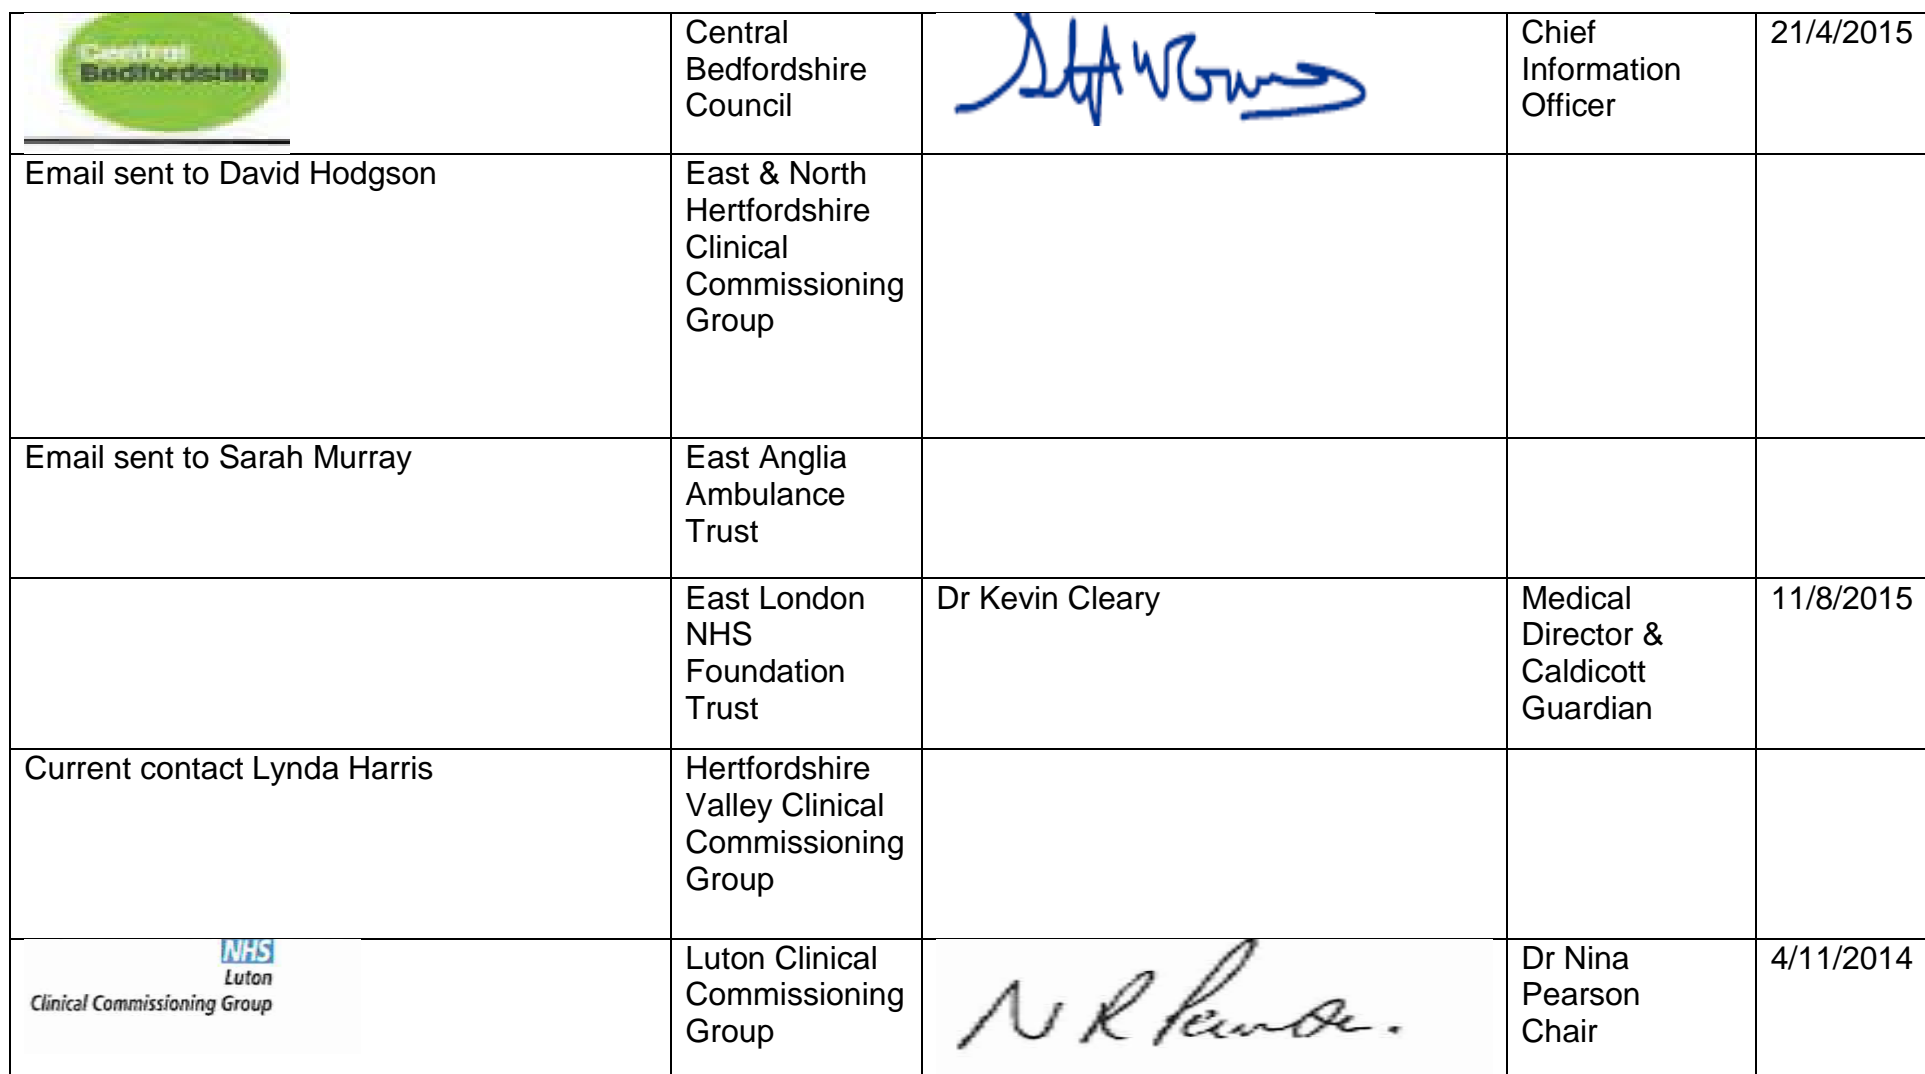 Central
Bedfordshire
Central
Bedfordshire
Council
Chief
Information
Officer
21/4/2015
Email sent to David Hodgson
East & North
Hertfordshire
Clinical
Commissioning
Group
Email sent to Sarah Murray
East Anglia
Ambulance
Trust
East London
NHS
Foundation
Trust
Dr Kevin Cleary
Medical
Director &
Caldicott
Guardian
11/8/2015
Current contact Lynda Harris
Hertfordshire
Valley Clinical
Commissioning
Group
NHS
Luton
Clinical Commissioning Group
Luton Clinical
Commissioning
Group
N R Pearson.
Dr Nina
Pearson
Chair
4/11/2014